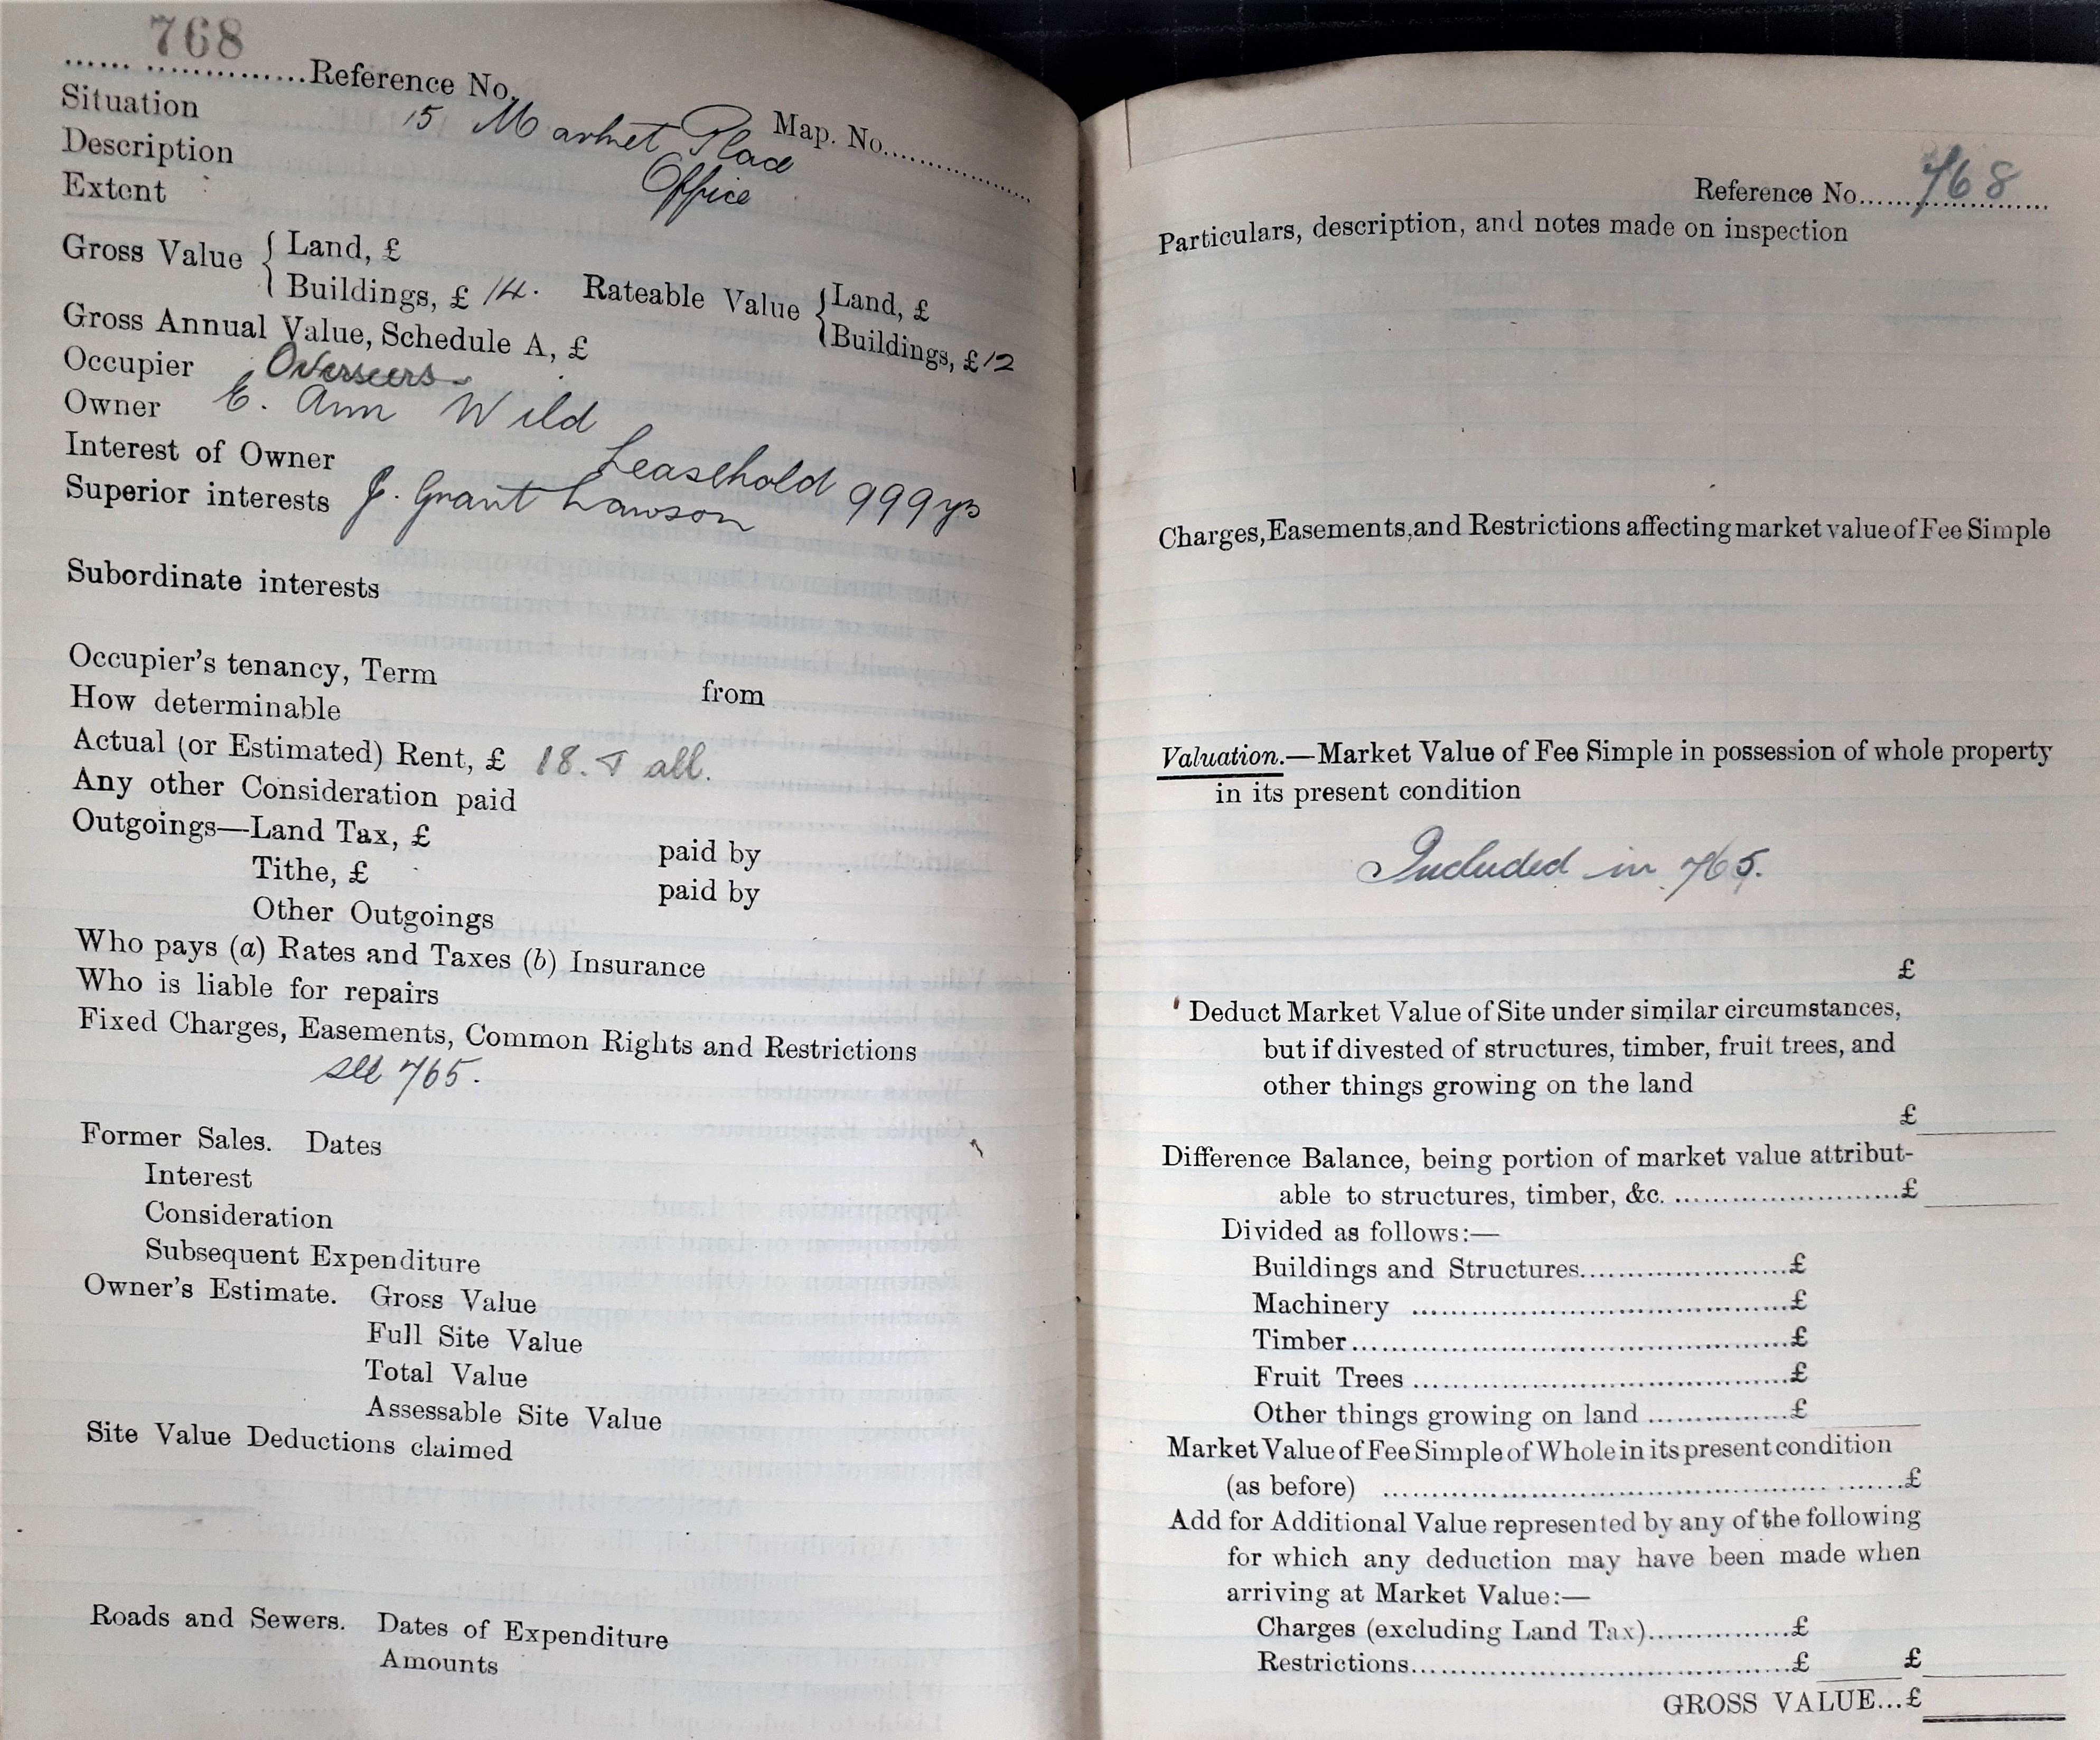 768
...... ..............Reference No.
Map. No....................
Situation 15 Market Place
Description Office
Extent
Gross Value { Land, £
Buildings, £ 14. Rateable Value { Land, £
Buildings, £ 12
Gross Annual Value, Schedule A, £
Occupier Overseers
Owner E. Ann Wild
Interest of Owner Leasehold 999 yrs
Superior interests J. Grant Lawson
Subordinate interests
Occupier's tenancy, Term from
How determinable
Actual (or Estimated) Rent, £ 18. T all.
Any other Consideration paid
Outgoings—Land Tax, £ paid by
Tithe, £ paid by
Other Outgoings
Who pays (a) Rates and Taxes (b) Insurance
Who is liable for repairs
Fixed Charges, Easements, Common Rights and Restrictions
see 765.
Former Sales. Dates
Interest
Consideration
Subsequent Expenditure
Owner's Estimate. Gross Value
Full Site Value
Total Value
Assessable Site Value
Site Value Deductions claimed
Roads and Sewers. Dates of Expenditure
Amounts
Reference No. 768
Particulars, description, and notes made on inspection
Charges, Easements, and Restrictions affecting market value of Fee Simple
Valuation.—Market Value of Fee Simple in possession of whole property
in its present condition
Included in 765.
£
Deduct Market Value of Site under similar circumstances,
but if divested of structures, timber, fruit trees, and
other things growing on the land
£
Difference Balance, being portion of market value attribut-
able to structures, timber, &c. ..........................£
Divided as follows:—
Buildings and Structures........................£
Machinery ..........................................£
Timber................................................£
Fruit Trees ..........................................£
Other things growing on land ................£
Market Value of Fee Simple of Whole in its present condition
(as before) ......................................................£
Add for Additional Value represented by any of the following
for which any deduction may have been made when
arriving at Market Value:—
Charges (excluding Land Tax)................£
Restrictions..........................................£ £
GROSS VALUE...£